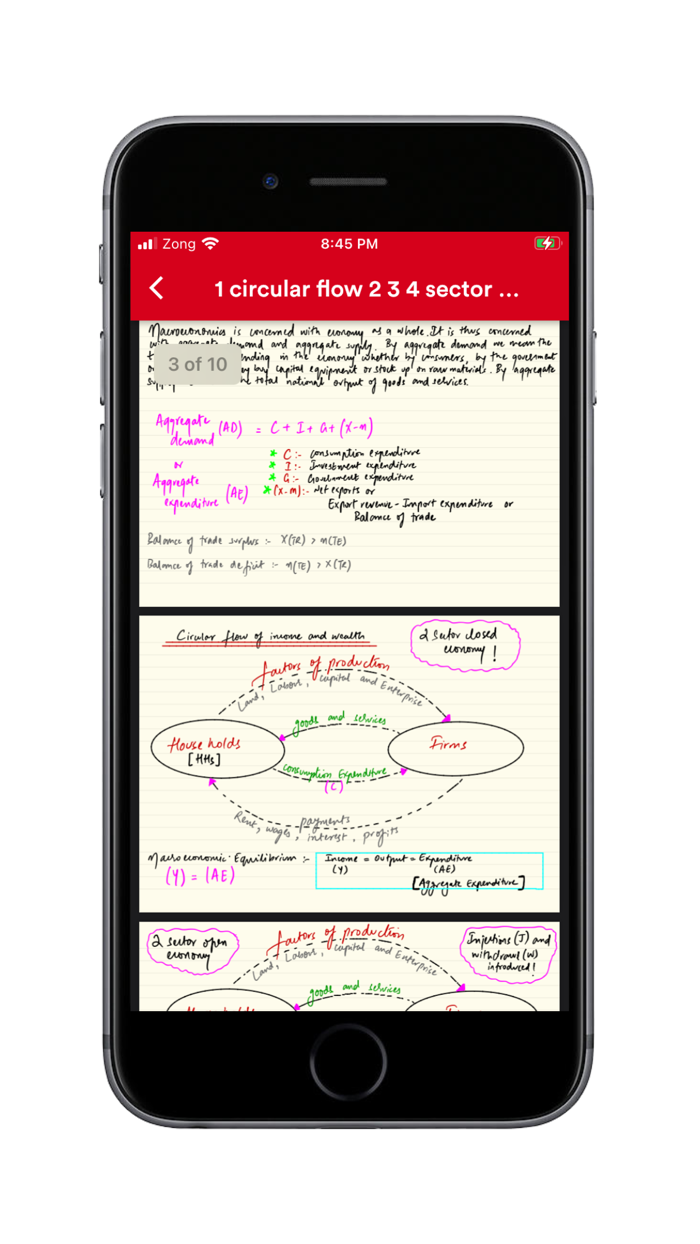 Zong
8:45 PM
1 circular flow 2 3 4 sector ...
Macroeconomics is concerned with economy as a whole. It is thus concerned
with aggregate demand and aggregate supply. By aggregate demand we mean the
spending in the economy whether by consumers, by the goverment
3 of 10
buy capital equipment or stock up on raw materials. By aggregate
the total national output of goods and services.
Aggregate demand (AD) = C + I + G + (X-m)
or
Aggregate expenditure (AE)
* C:- consumption expenditure
* I:- Investment expenditure
* G:- Government expenditure
* (x-m):- Net exports or
Export revenue - Import expenditure or
Balance of trade
Balance of trade surplus :- X(TR) > m(TE)
Balance of trade deficit :- m(TE) > X(TR)
Circular flow of income and wealth
2 sector closed
economy !
factors of production
Land, Labour, capital and Enterprise
goods and services
House holds
[HHs]
Firms
consumption Expenditure
(C)
payments
Rent, wages, interest, profits
Macroeconomic Equilibrium :-
(Y) = (AE)
Income = Output = Expenditure
(Y) (AE)
[Aggregate Expenditure]
2 sector open
economy
factors of production
Land, Labour, capital and Enterprise
Injections (J) and
withdrawl (W)
introduced !
goods and services